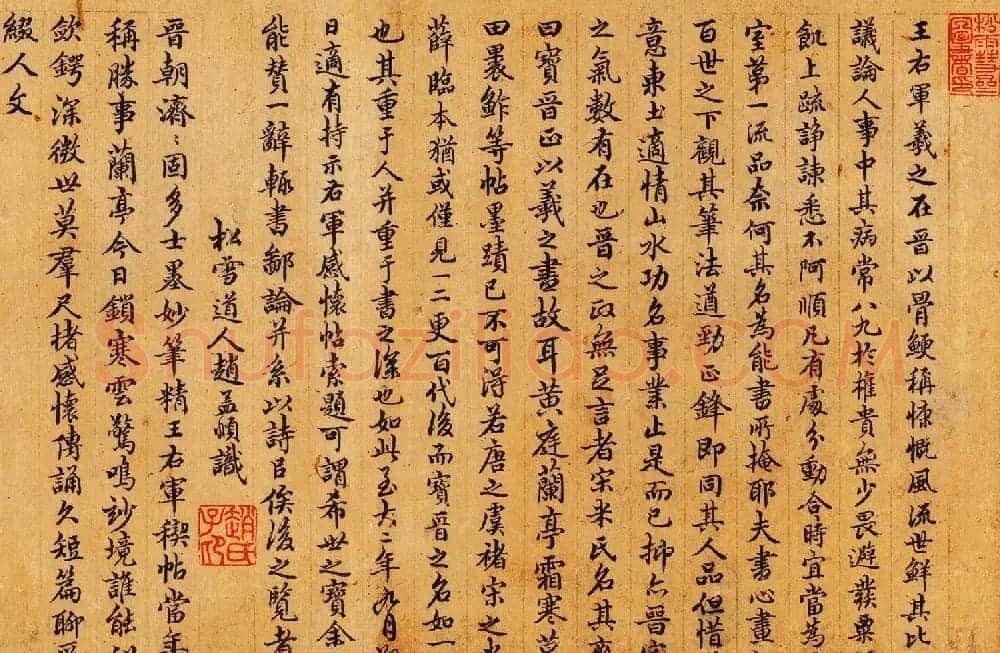 王右軍羲之在晉以骨鯁稱慷慨風流世鮮其比
議論人事中其病常八九於權貴無少畏避發粟
飢上疏諍諫悉不阿順凡有處分動合時宜當爲
室第一流品奈何其名為能書所掩耶夫書心畫
百世之下觀其筆法遒勁正鋒即同其人品但惜
意東土適情山水功名事業止是而已抑亦晉
之氣數有在也晉之政無足言者宋米氏名其
曰寶晉正以羲之書故耳黃庭蘭亭霜寒
田裹鮓等帖墨蹟已不可淂若唐之虞褚宋之
薛臨本猶或僅見一二更百代後而寶晉之名如一
也其重于人并重于書之深也如此至大二年九月
日適有持示右軍感懷帖索題可謂希世之寶余
能贊一辭輙書鄙論并系以詩以俟後之覽者
松雪道人趙孟頫識
晉朝濟〻固多士墨妙筆精王右軍稧帖當年
稱勝事蘭亭今日鎖寒雲驚鳴妙境誰能
斂鍔深微世莫羣尺楮感懷傳誦久短篇聊
綴人文
趙氏子昂
Shufaziliao.COM